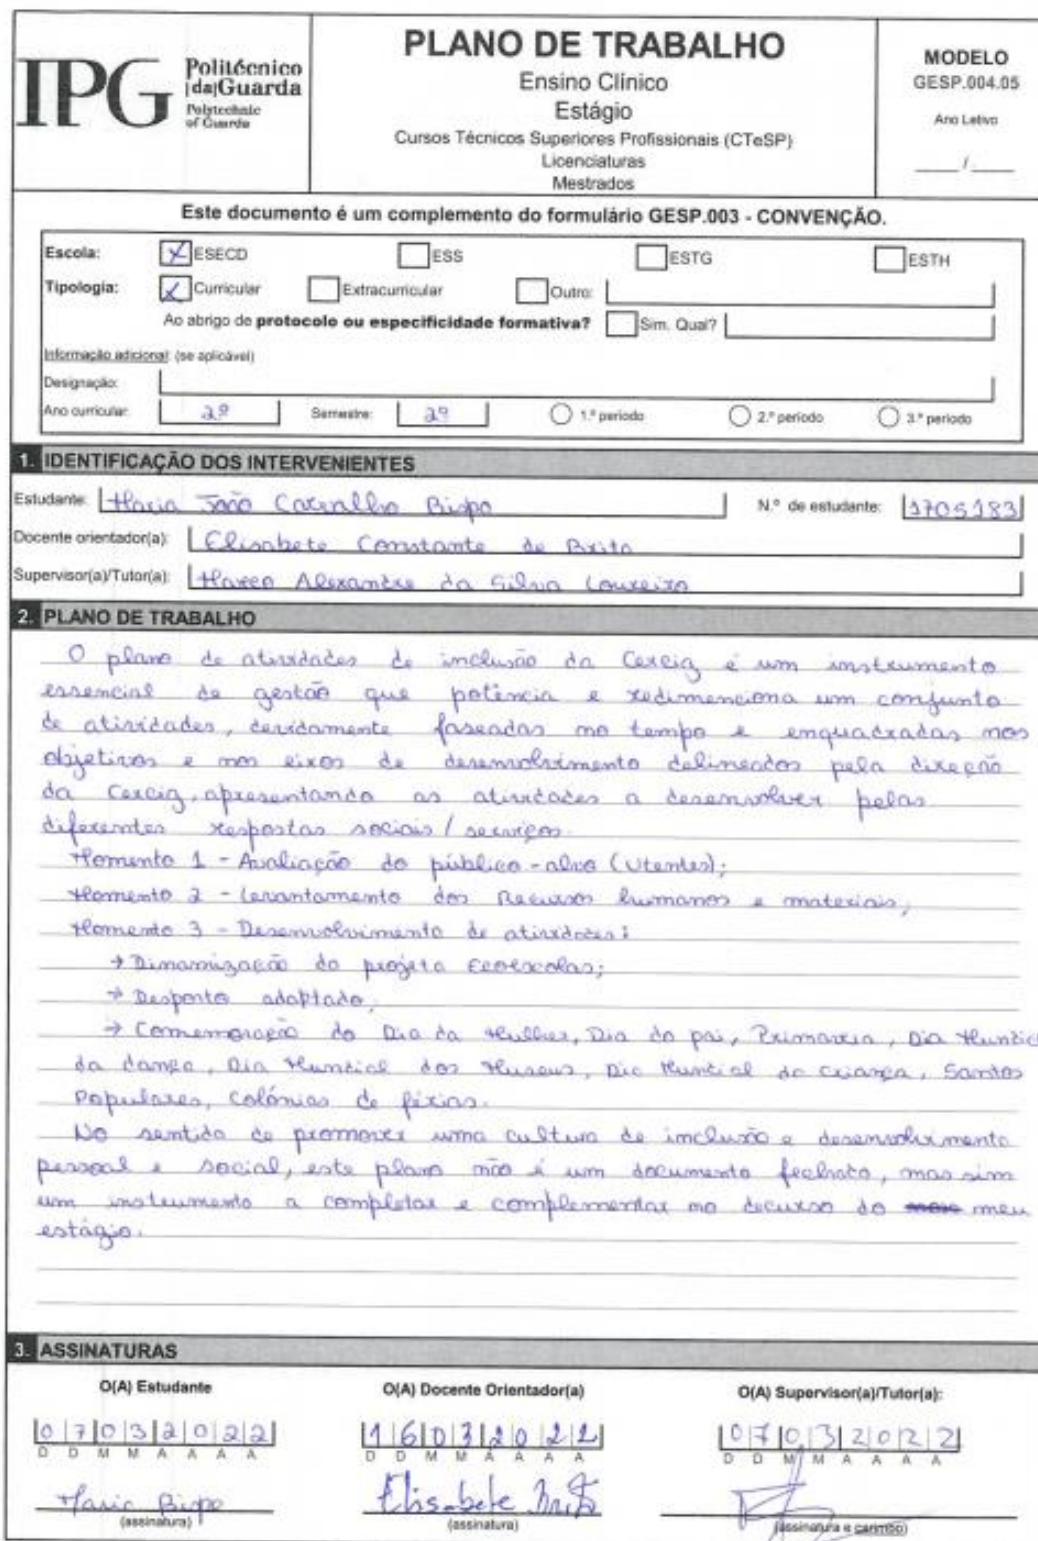 IPG Politécnico |da|Guarda Polytechnic of Guarda
PLANO DE TRABALHO
Ensino Clínico
Estágio
Cursos Técnicos Superiores Profissionais (CTeSP)
Licenciaturas
Mestrados
MODELO
GESP.004.05
Ano Letivo
____/____
Este documento é um complemento do formulário GESP.003 - CONVENÇÃO.
Escola: X ESECD ESS ESTG ESTH
Tipologia: X Curricular Extracurricular Outro:
Ao abrigo de protocolo ou especificidade formativa? Sim. Qual?
Informação adicional: (se aplicável)
Designação:
Ano curricular: 2º Semestre: 2º 1.º período 2.º período 3.º período
1. IDENTIFICAÇÃO DOS INTERVENIENTES
Estudante: Maria João Carvalho Bispo N.º de estudante: 1705183
Docente orientador(a): Elisabete Constante de Brito
Supervisor(a)/Tutor(a): Marco Alexandre da Silva Loureiro
2. PLANO DE TRABALHO
O plano de atividades de inclusão da Cercig é um instrumento
essencial de gestão que potência e redimenciona um conjunto
de atividades, devidamente faseadas no tempo e enquadradas nos
objetivos e nos eixos de desenvolvimento delineados pela direção
da Cercig, apresentando as atividades a desenvolver pelas
diferentes respostas sociais / serviços.
Momento 1 - Avaliação do público-alvo (Utentes);
Momento 2 - Levantamento dos Recursos humanos e materiais;
Momento 3 - Desenvolvimento de atividades:
→ Dinamização do projeto Ecoescolas;
→ Desporto adaptado;
→ Comemoração do Dia da Mulher, Dia do pai, Primavera, Dia Mundial
da dança, Dia Mundial dos Museus, Dia Mundial da criança, Santos
Populares, Colónias de férias.
No sentido de promover uma cultura de inclusão e desenvolvimento
pessoal e social, este plano não é um documento fechado, mas sim
um instrumento a completar e complementar no decurso do meu
estágio.
3. ASSINATURAS
O(A) Estudante O(A) Docente Orientador(a) O(A) Supervisor(a)/Tutor(a):
07032022 16032022 07032022
D D M M A A A A D D M M A A A A D D M M A A A A
Maria Bispo Elisabete Brito
(assinatura) (assinatura) (assinatura e carimbo)